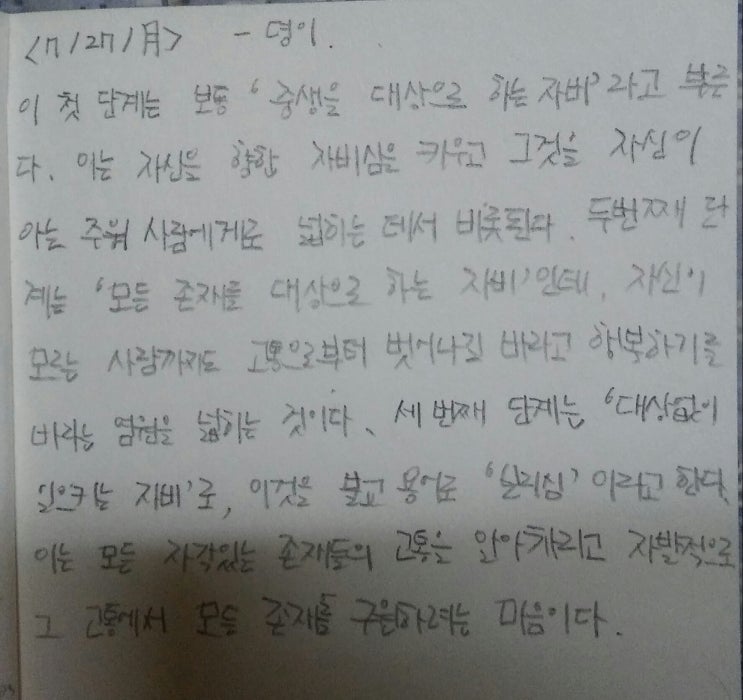 <7/27/月> - 명이.
이 첫 단계는 보통 '중생을 대상으로 하는 자비'라고 부른
다. 이는 자신을 향한 자비심을 키우고 그것을 자신이
아는 주위 사람에게로 넓히는 데서 비롯된다. 두번째 단
계는 '모든 존재를 대상으로 하는 자비'인데, 자신이
모르는 사람까지도 고통으로부터 벗어나길 바라고 행복하기를
바라는 염원을 넓히는 것이다. 세 번째 단계는 '대상없이
일으키는 자비'로, 이것을 불교 용어로 '보리심'이라고 한다.
이는 모든 자각있는 존재들의 고통을 알아차리고 자발적으로
그 고통에서 모든 존재를 구원하려는 마음이다.